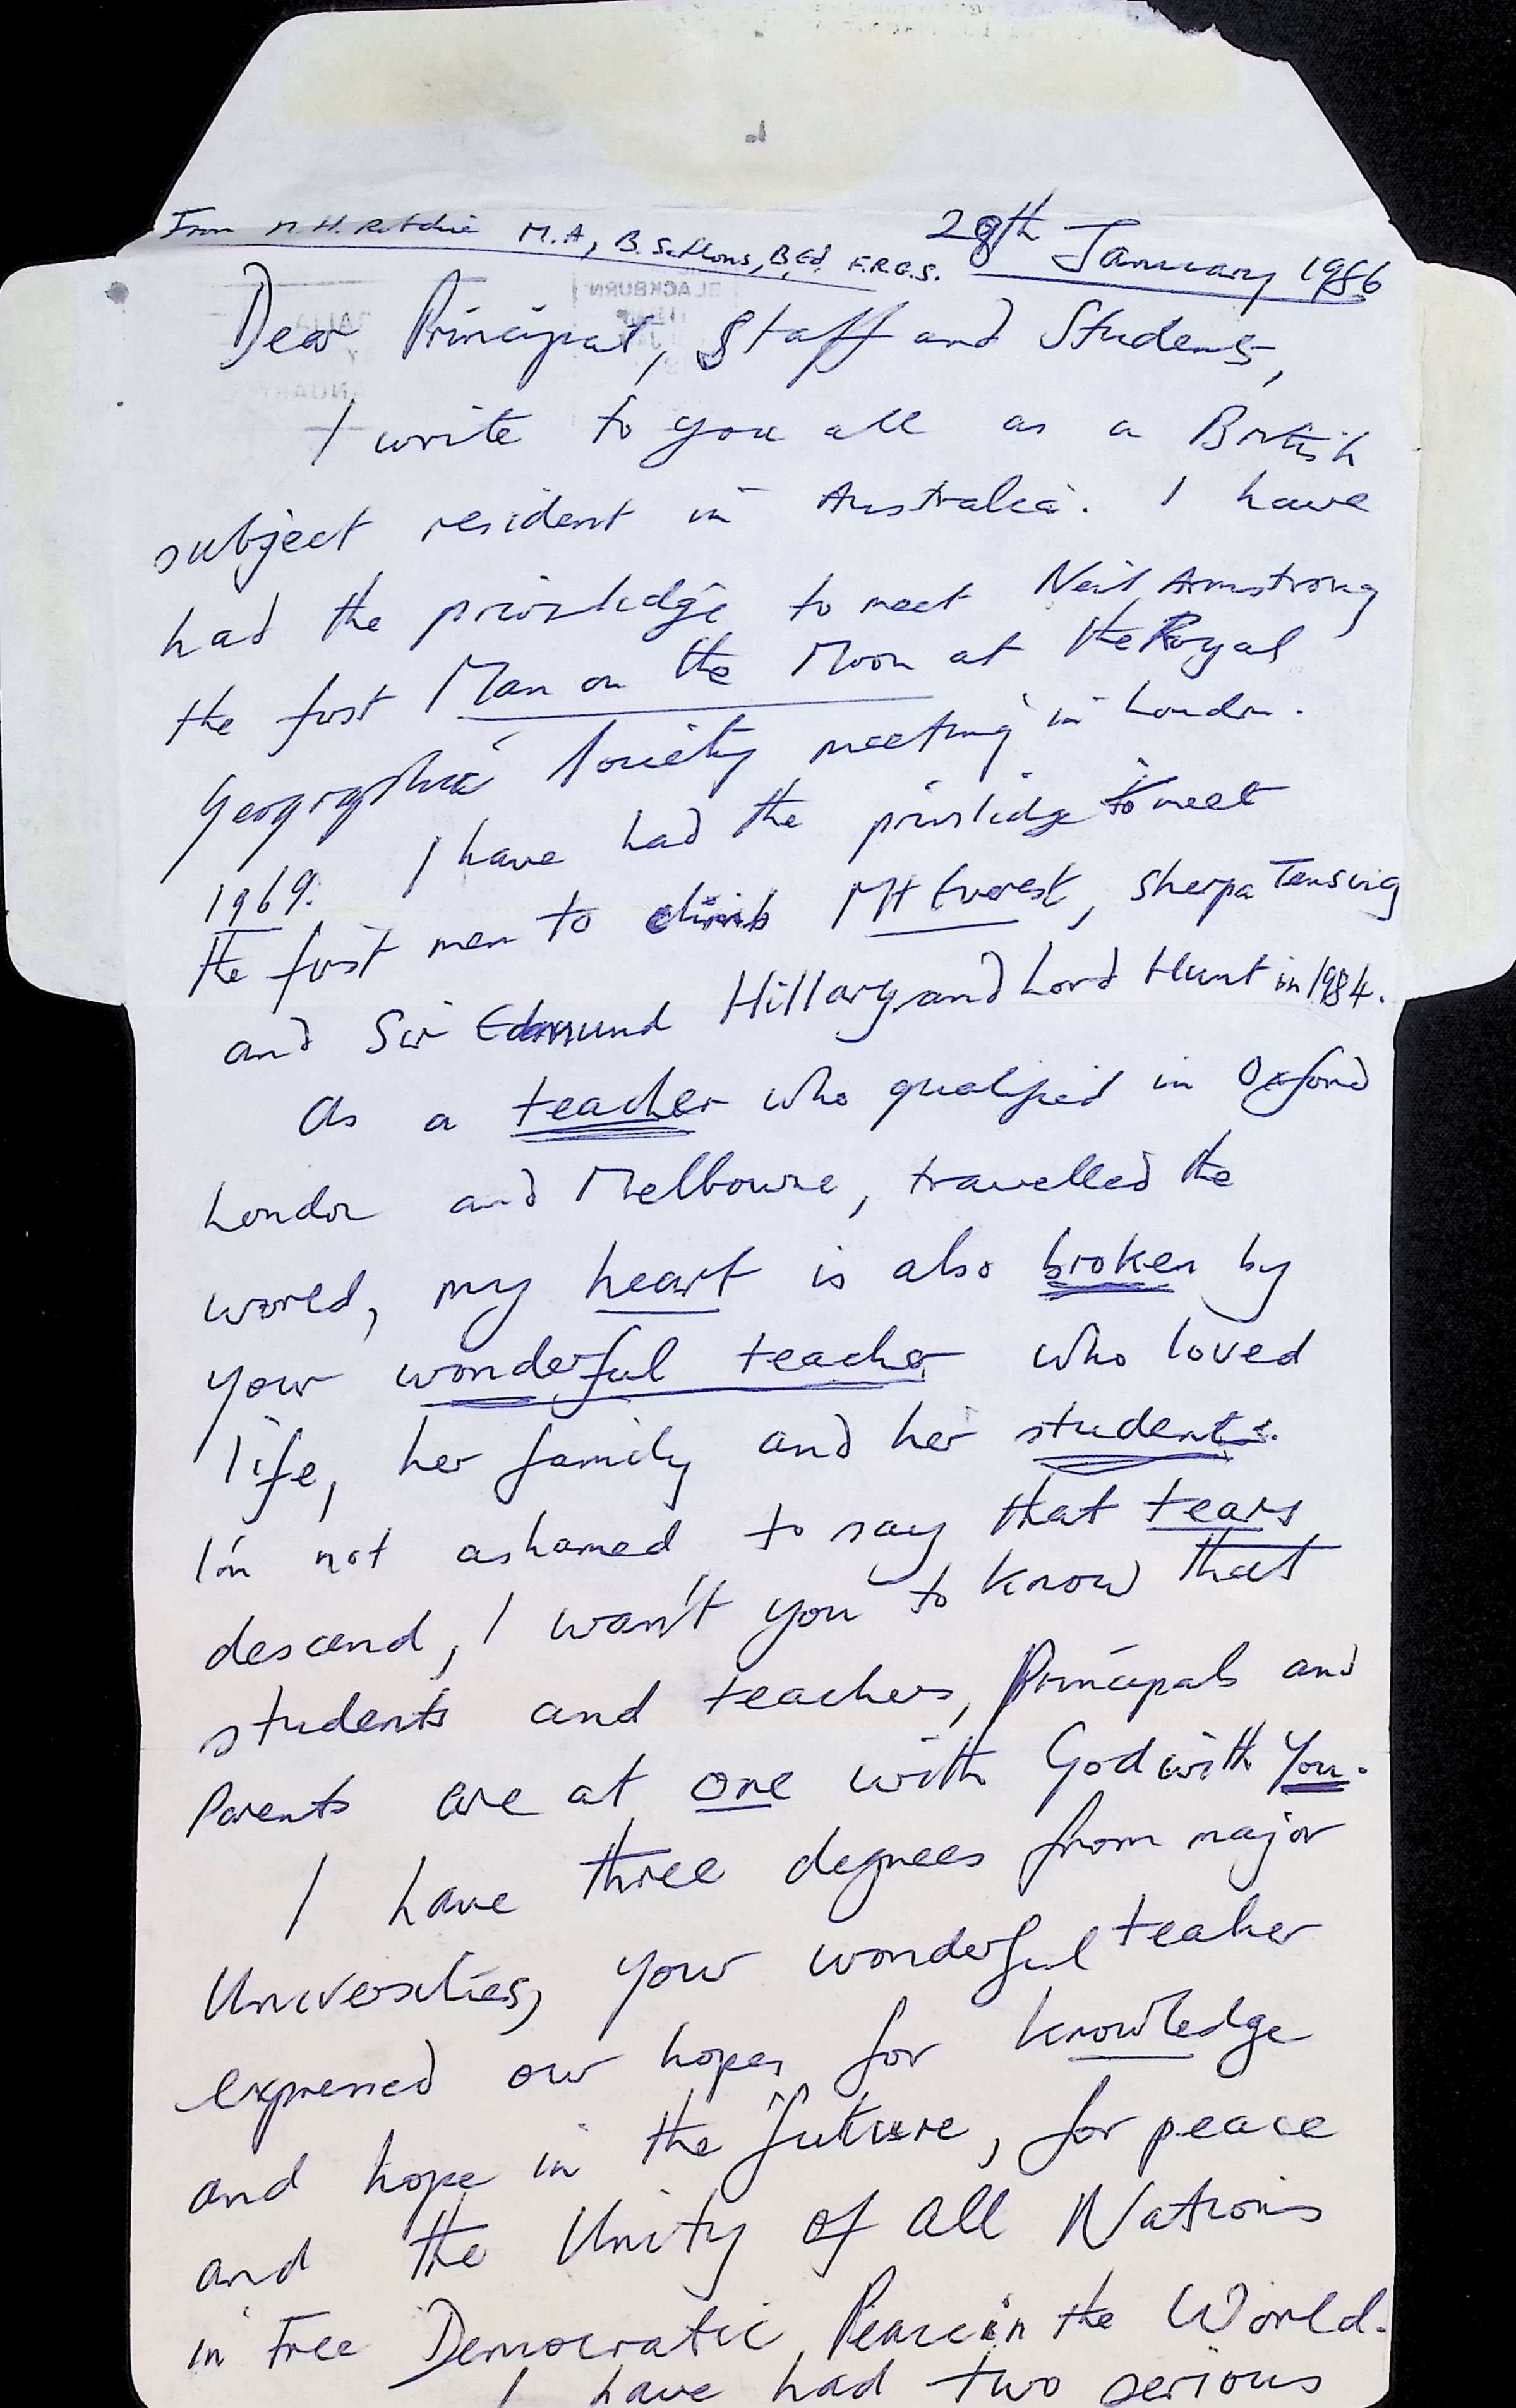 From M.H. Ritchie M.A, B.Sc.Hons, B.Ed. F.R.G.S. 28th January 1986
Dear Principal, Staff and Students,
I write to you all as a British
subject resident in Australia. I have
had the privilidge to meet Neil Armstrong
the first Man on the Moon at the Royal
Geographic Society meeting in London.
1969. I have had the privilidge to meet
the first men to climb Mt Everest, Sherpa Tensing
and Sir Edmund Hillary and Lord Hunt in 1984.
As a teacher who qualified in Oxford
London and Melbourne, travelled the
world, my heart is also broken by
your wonderful teacher who loved
life, her family and her students.
I'm not ashamed to say that tears
descend, I wan't you to know that
students and teachers, Principals and
Parents are at one with God with You.
I have three degrees from major
Universities, your wonderful teaher
expressed our hopes for knowledge
and hope in the future, for peace
and the Unity of all Nations
in Free Democratic Peace in the World.
I have had two serious
BLACKBURN